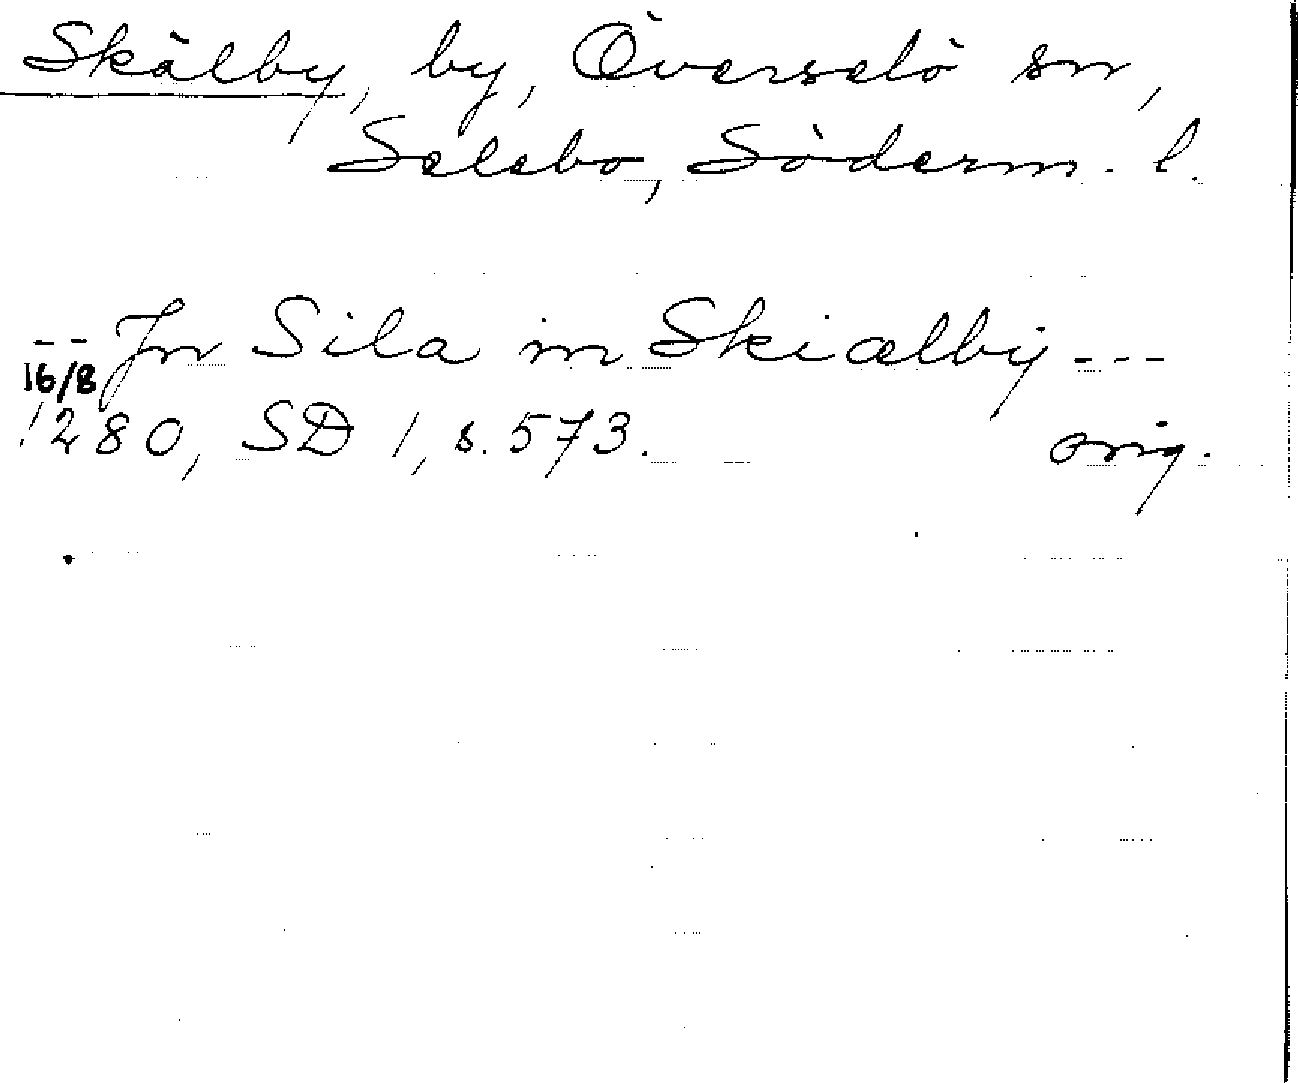 Skälby, by, Överselö sn,
Selebo, Söderm. l.
-- Jn Sila in Skiælby ---
16/8
1280, SD 1, s. 573. orig.